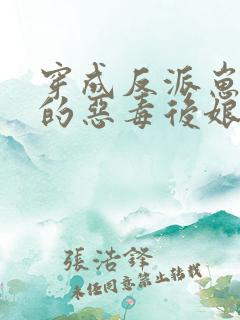 穿成反派崽
的惡毒後娘
張浩鋒
未经同意禁止转载